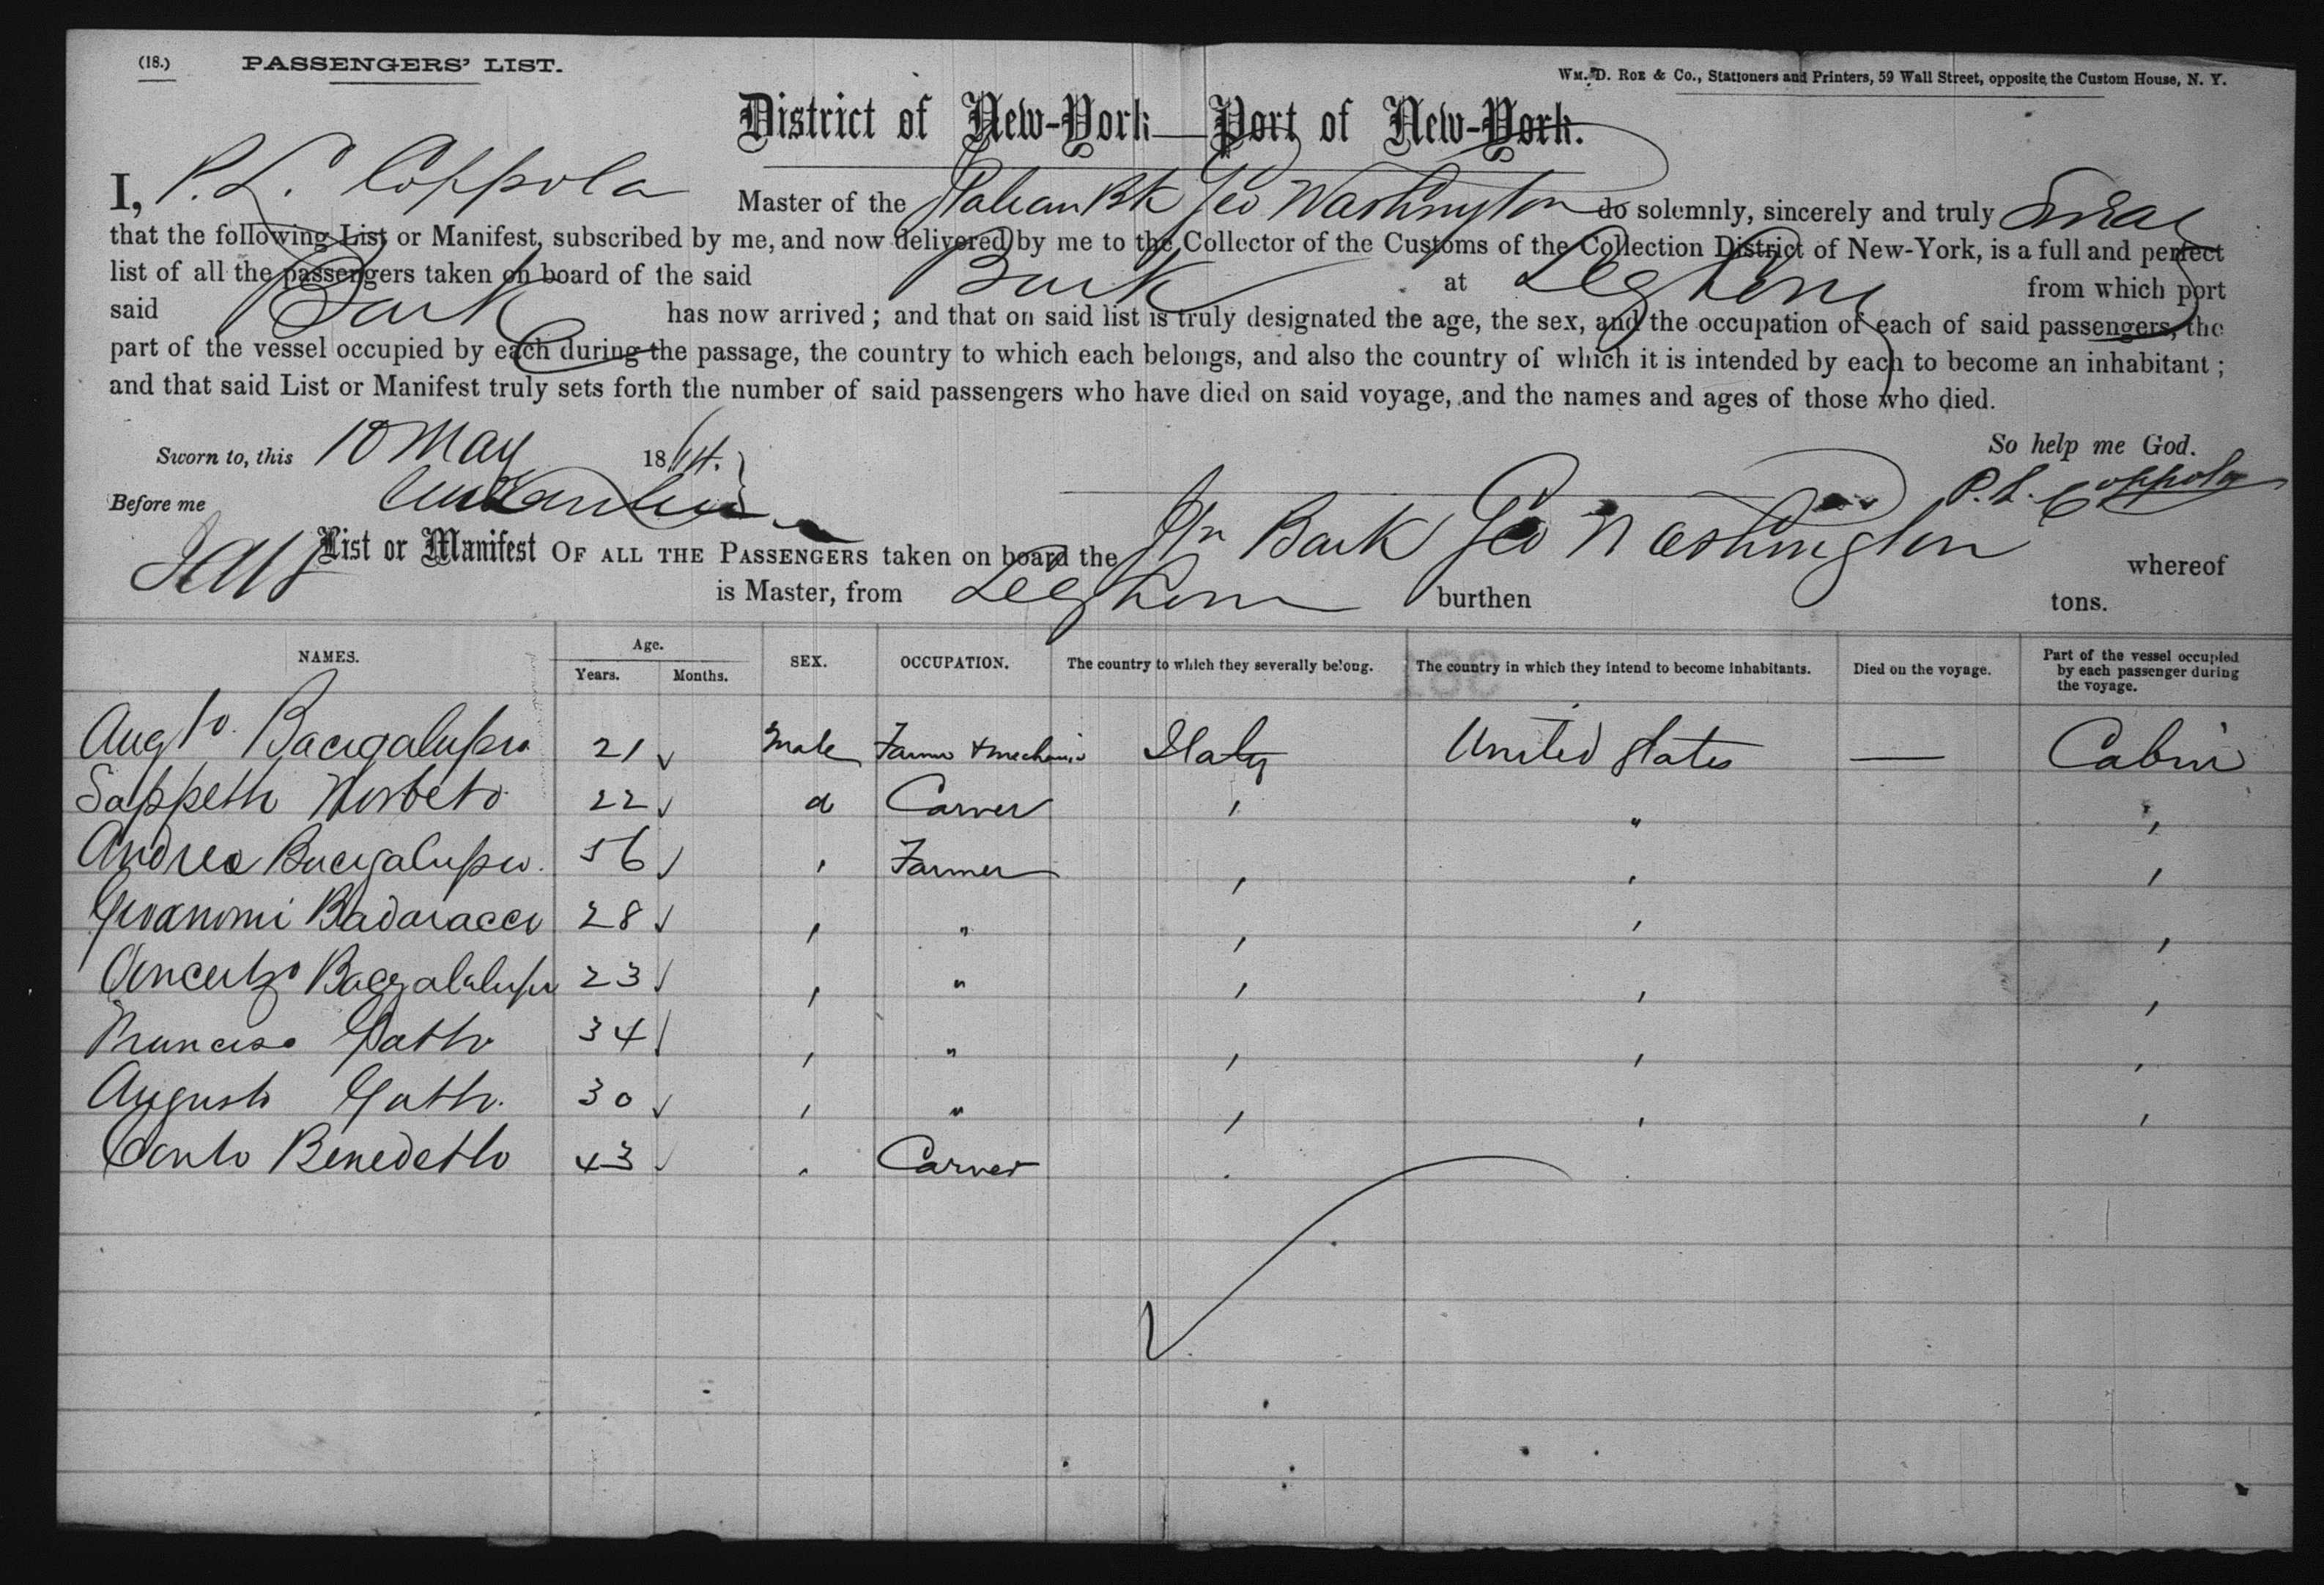 (18.) PASSENGERS' LIST.
WM. D. ROE & Co., Stationers and Printers, 59 Wall Street, opposite the Custom House, N. Y.
District of New-York—Port of New-York.
I, P. L. Coppola Master of the Italian Bk Geo Washington do solemnly, sincerely and truly swear
that the following List or Manifest, subscribed by me, and now delivered by me to the Collector of the Customs of the Collection District of New-York, is a full and perfect
list of all the passengers taken on board of the said Bark at Leghorn from which port
said Bark has now arrived; and that on said list is truly designated the age, the sex, and the occupation of each of said passengers, the
part of the vessel occupied by each during the passage, the country to which each belongs, and also the country of which it is intended by each to become an inhabitant;
and that said List or Manifest truly sets forth the number of said passengers who have died on said voyage, and the names and ages of those who died.
Sworn to, this 10 May 18 So help me God.
Before me P. L. Coppola
List or Manifest OF ALL THE PASSENGERS taken on board the Itn Bark Geo Washington whereof
is Master, from Leghorn burthen tons.
NAMES. Age. Years. Months. SEX. OCCUPATION. The country to which they severally belong. The country in which they intend to become inhabitants. Died on the voyage. Part of the vessel occupied by each passenger during the voyage.
Augto. Bacigalupo 21 Male Farmer & mechanic Italy United States — Cabin
Norbeto 22 d Carver " " "
Andrea Bacigalupo. 56 " Farmer " " "
Giovanni Badaracco 28 " " " " "
23 " " " " "
Francisco Gatto 34 " " " " "
Augusto Gatto. 30 " " " " "
Benedetto 43 " Carver " "